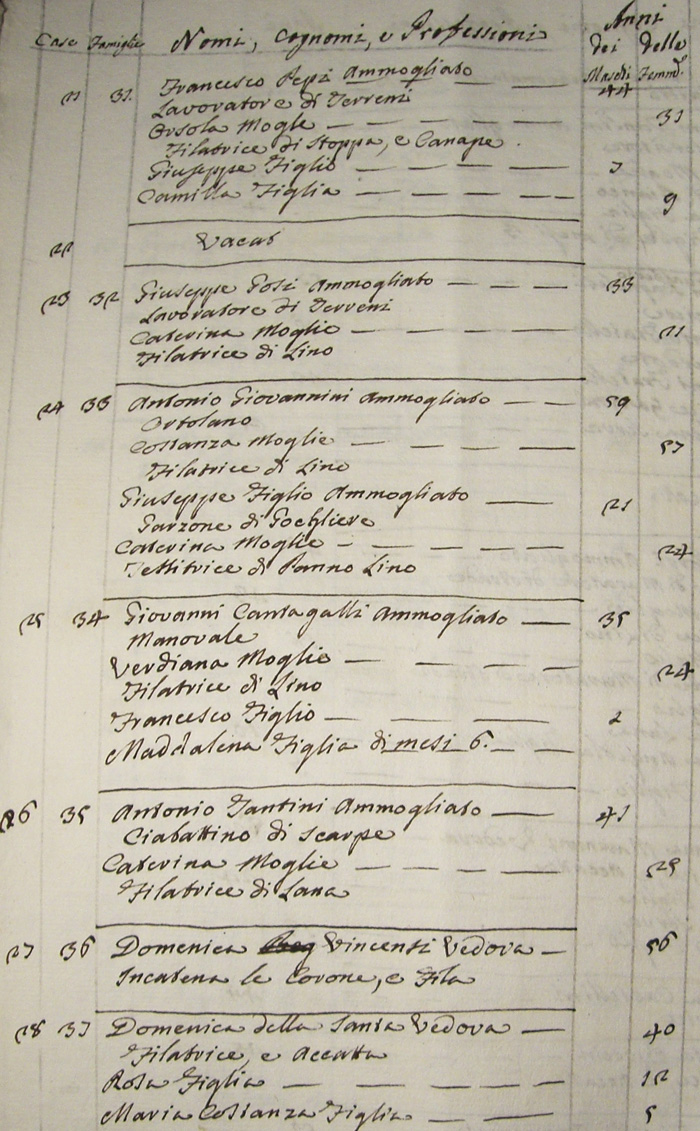 Case Famiglie Nomi, Cognomi, e Professioni Anni
dei delle
Maschi Femm.
21 31. Francesco Pepi Ammogliato 44
Lavoratore di Terreni
Orsola Mogle — — — — — 31
Filatrice di Stoppa, e Canape.
Giuseppe Figlio — — — — 7
Camilla Figlia — — — — — 9
22 Vacat
23 32 Giuseppe Gosi Ammogliato — — — 33
Lavoratore di Terreni
Caterina Moglie — — — — — 21
Filatrice di Lino
24 33 Antonio Giovannini Ammogliato — — 59
Ortolano
Costanza Moglie — — — — — 57
Filatrice di Lino
Giuseppe Figlio Ammogliato — — 21
Garzone di
Caterina Moglie — — — — — 22
Tessitrice di Panno Lino
25 34 Giovanni Cantagalli Ammogliato — 35
Manovale
Verdiana Moglie — — — — 24
Filatrice di Lino
Francesco Figlio — — — — 2
Maddalena Figlia di mesi 6. — —
26 35 Antonio Santini Ammogliato — 41
Ciabattino di Scarpe
Caterina Moglie — — — — — 29
Filatrice di Lana
27 36 Domenica Vincenti Vedova — 56
Incatena le Corone, e Fila
28 37 Domenica della Santa Vedova — 40
Filatrice, e Accatta
Rosa Figlia — — — — — 12
Maria Costanza Figlia — — — 5